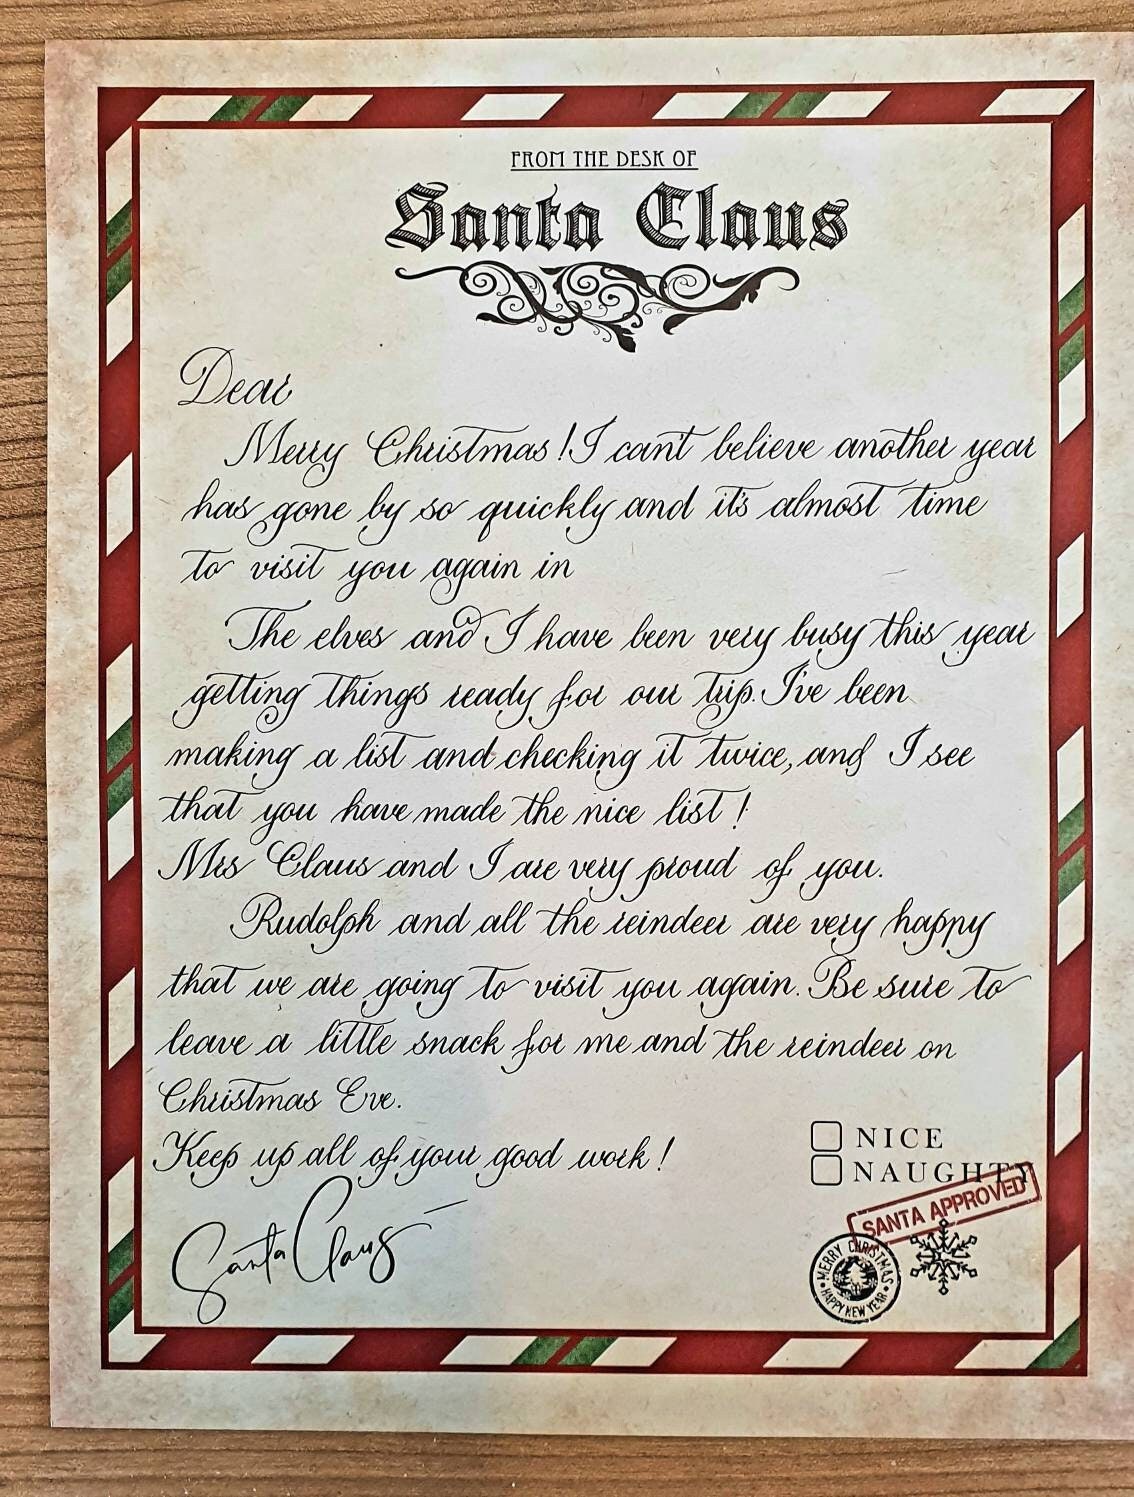 FROM THE DESK OF
Santa Claus
Dear
Merry Christmas! I can't believe another year
has gone by so quickly and it's almost time
to visit you again in
The elves and I have been very busy this year
getting things ready for our trip. I've been
making a list and checking it twice, and I see
that you have made the nice list!
Mrs Claus and I are very proud of you.
Rudolph and all the reindeer are very happy
that we are going to visit you again. Be sure to
leave a little snack for me and the reindeer on
Christmas Eve.
Keep up all of your good work!
NICE
NAUGHTY
SANTA APPROVED
Santa Claus
MERRY CHRISTMAS
HAPPY NEW YEAR